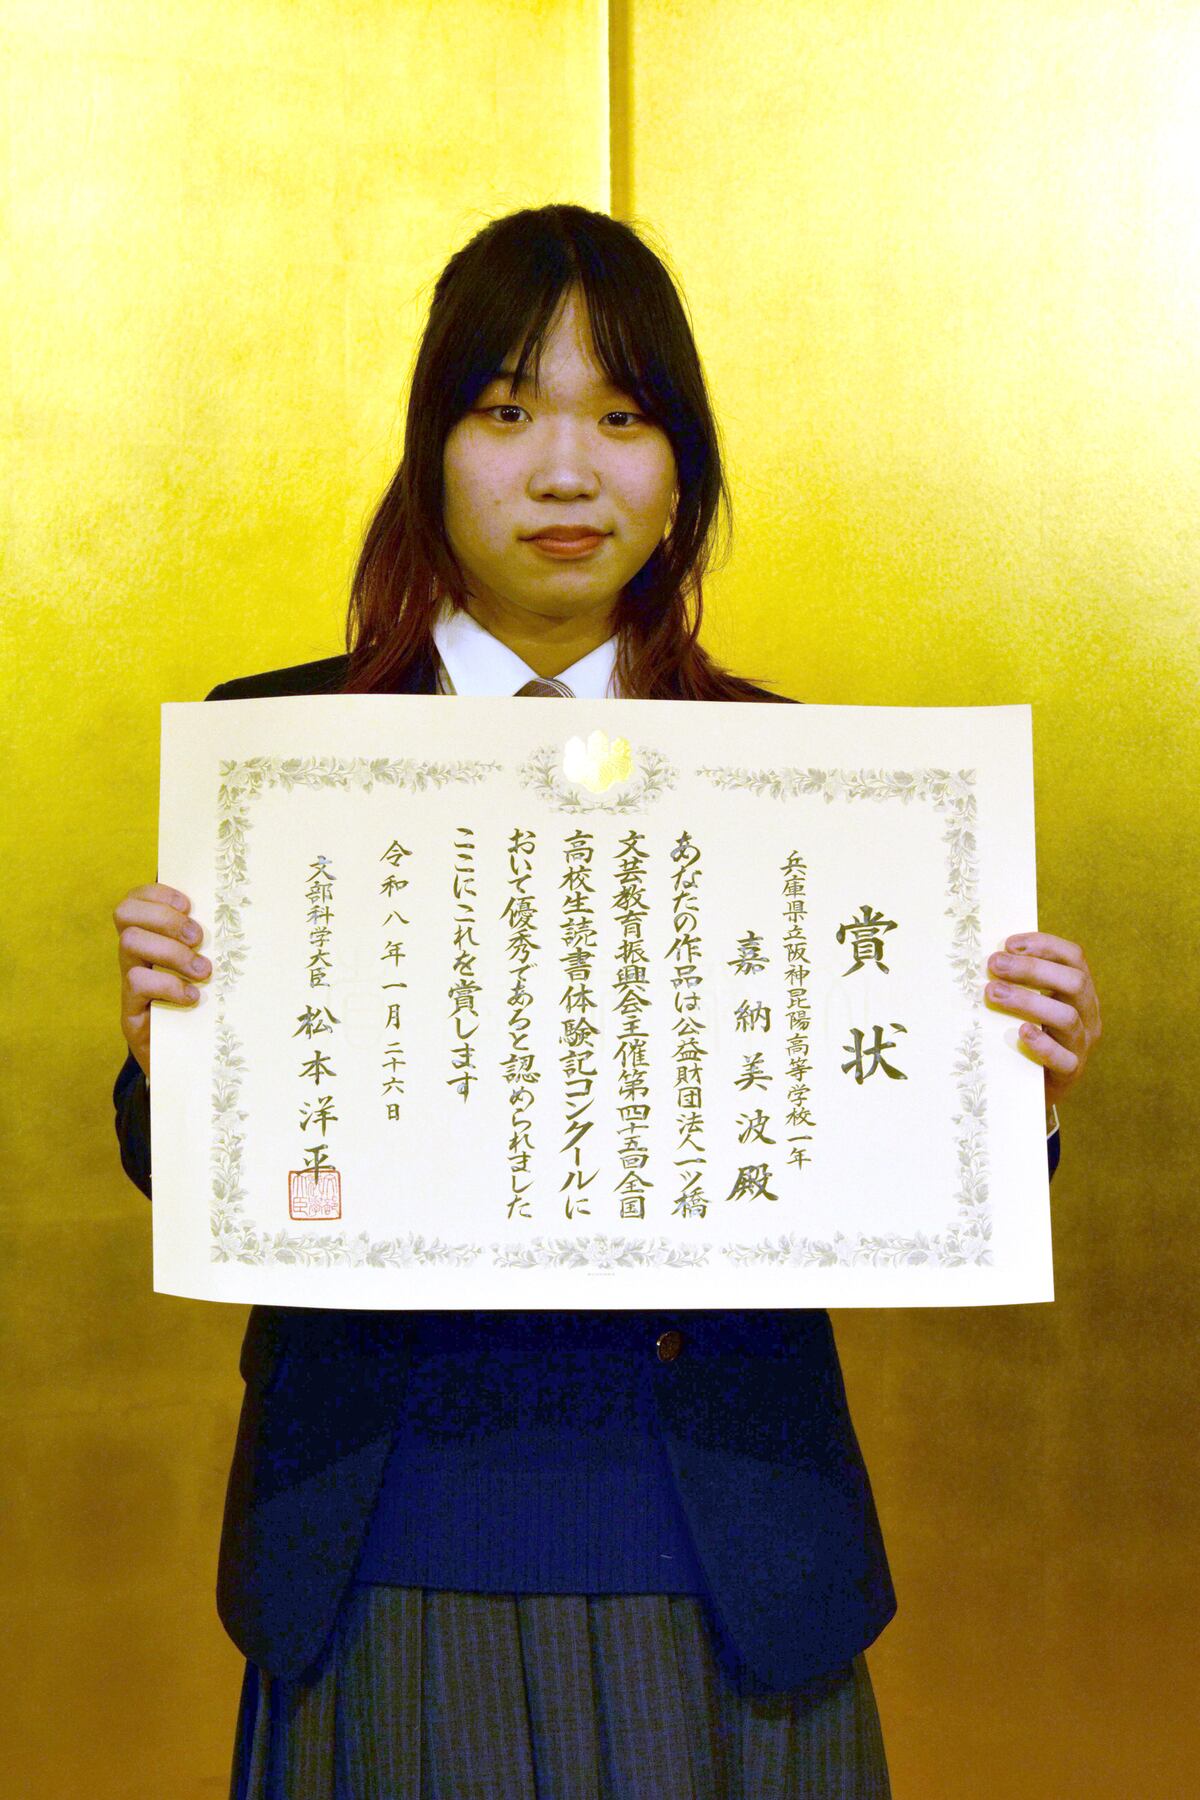 賞状
兵庫県立阪神昆陽高等学校一年
嘉納美波殿
あなたの作品は公益財団法人一ツ橋
文芸教育振興会主催第四十五回全国
高校生読書体験記コンクールに
おいて優秀であると認められました
ここにこれを賞します
令和八年一月二十六日
文部科学大臣 松本洋平